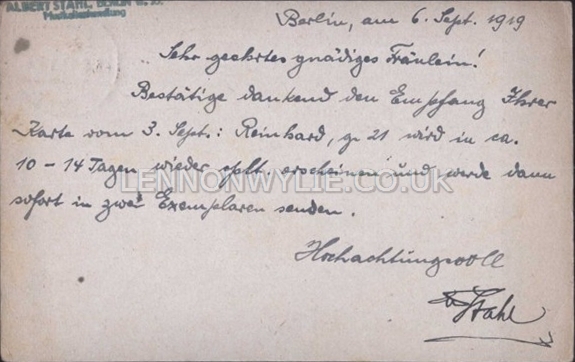 ALBERT STAHL, BERLIN W. 35.
Musikalienhandlung
Berlin, am 6. Sept. 1919
Sehr geehrtes gnädiges Fräulein!
Bestätige dankend den Empfang Ihrer
Karte vom 3. Sept.: Reinhard, 21 wird in ca.
10 – 14 Tagen wieder erscheinen und werde dann
sofort in zwei Exemplaren senden.
Hochachtungsvoll
Stahl
LENNONWYLIE.CO.UK